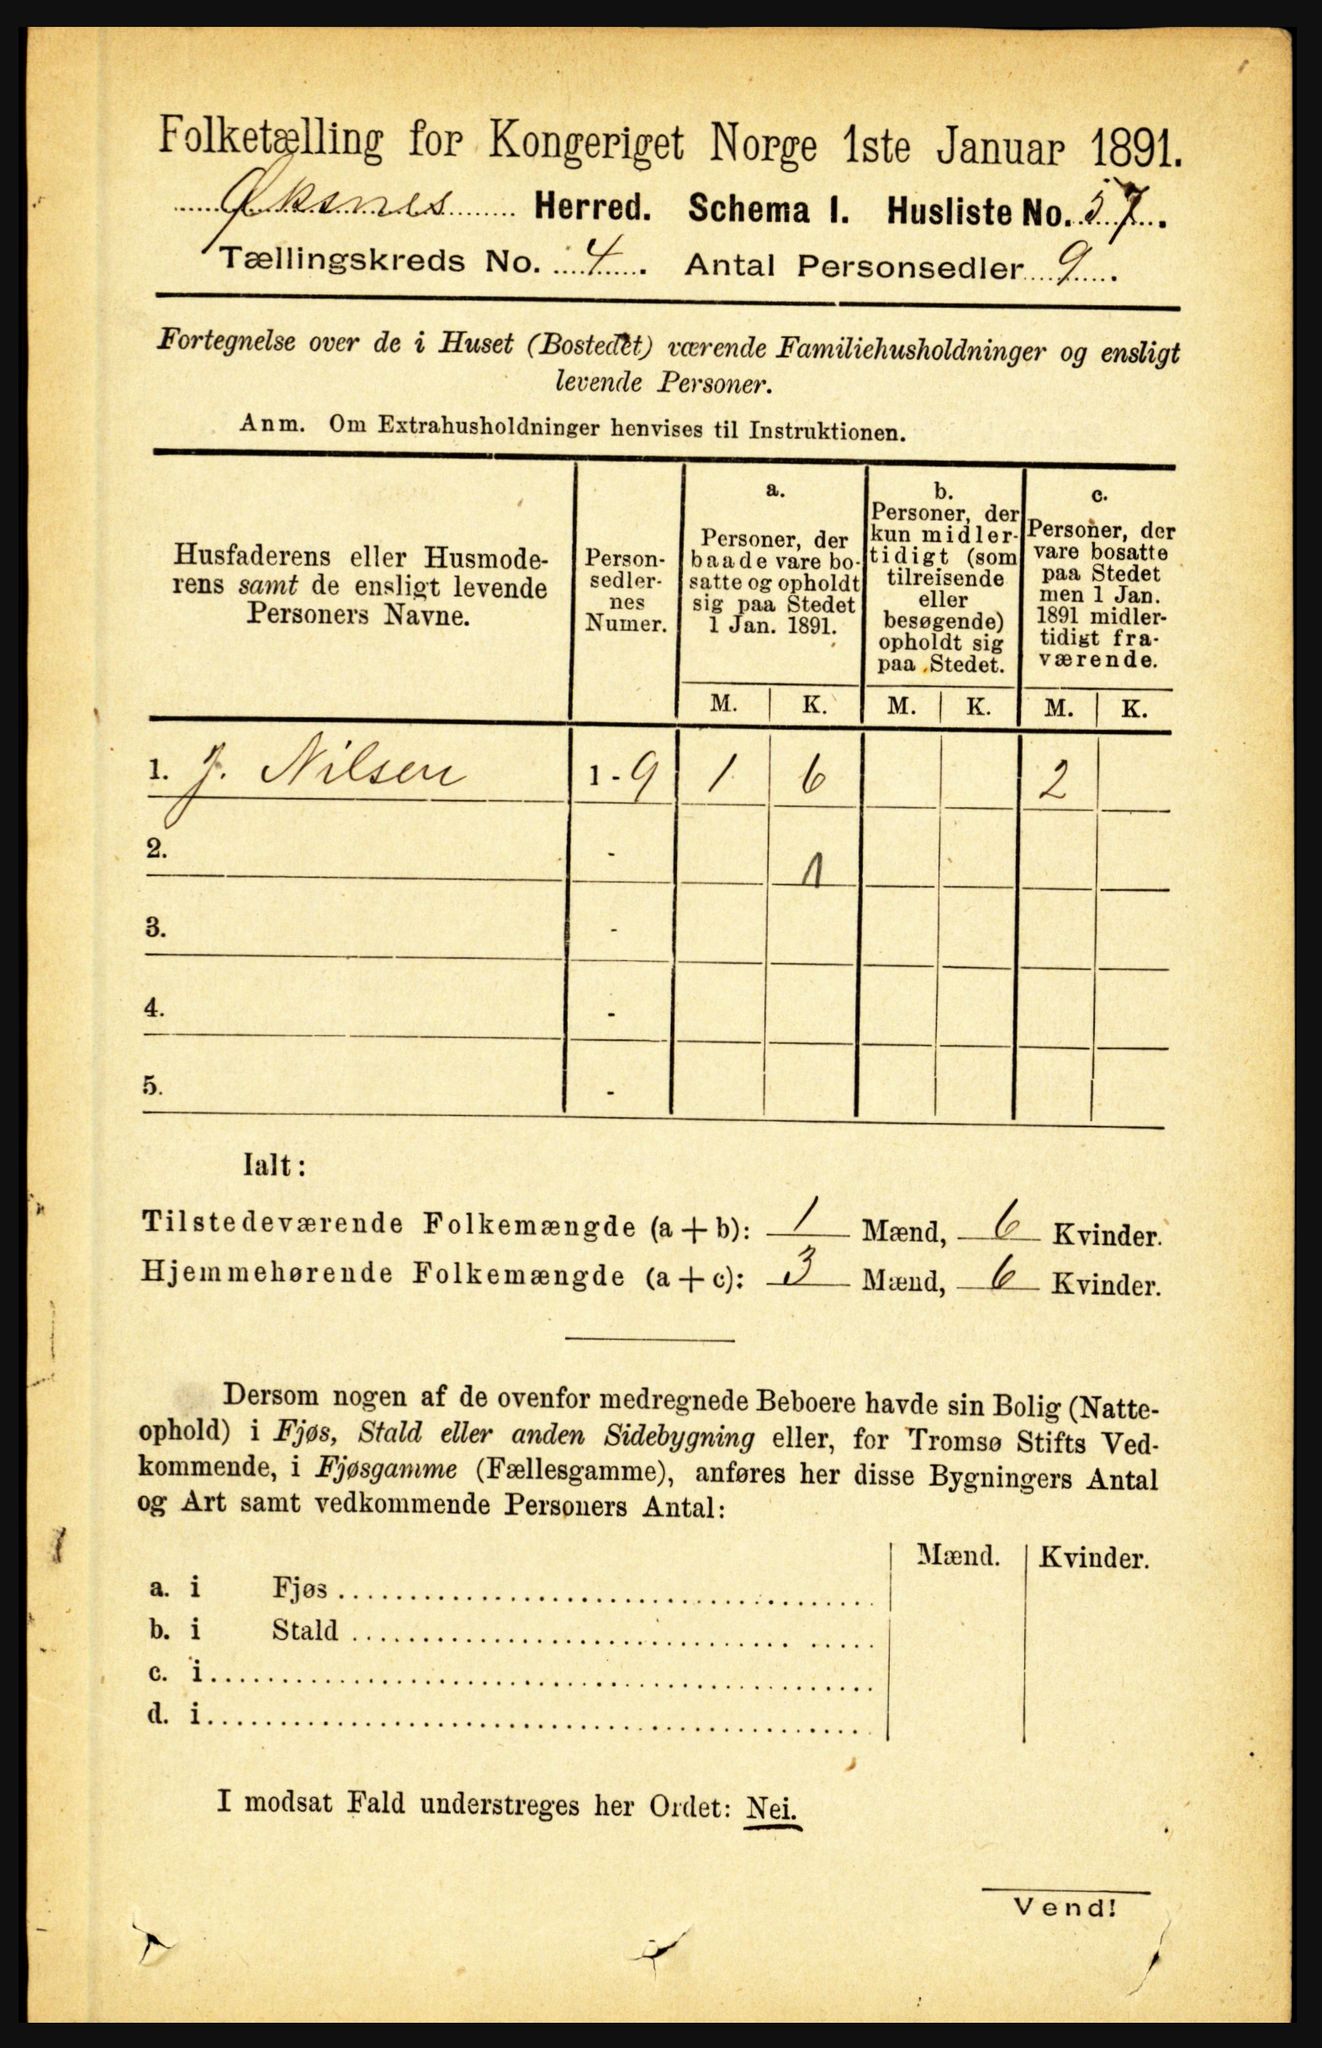 Folketælling for Kongeriget Norge 1ste Januar 1891.
Øksnes Herred. Schema I. Husliste No. 57.
Tællingskreds No. 4. Antal Personsedler 9.
Fortegnelse over de i Huset (Bostedet) værende Familiehusholdninger og ensligt
levende Personer.
Anm. Om Extrahusholdninger henvises til Instruktionen.
Husfaderens eller Husmode-
rens samt de ensligt levende
Personers Navne.
Person-
sedler-
nes
Numer.
a.
Personer, der
baade vare bo-
satte og opholdt
sig paa Stedet
1 Jan. 1891.
b.
Personer, der
kun midler-
tidigt (som
tilreisende
eller
besøgende)
opholdt sig
paa Stedet.
c.
Personer, der
vare bosatte
paa Stedet
men 1 Jan.
1891 midler-
tidigt fra-
værende.
M. K. M. K. M. K.
1. J. Nilsen 1 - 9 1 6 2
2. - 1
3. -
4. -
5. -
Ialt:
Tilstedeværende Folkemængde (a + b): 1 Mænd, 6 Kvinder.
Hjemmehørende Folkemængde (a + c): 3 Mænd, 6 Kvinder.
Dersom nogen af de ovenfor medregnede Beboere havde sin Bolig (Natte-
ophold) i Fjøs, Stald eller anden Sidebygning eller, for Tromsø Stifts Ved-
kommende, i Fjøsgamme (Fællesgamme), anføres her disse Bygningers Antal
og Art samt vedkommende Personers Antal:
Mænd. Kvinder.
a. i Fjøs
b. i Stald
c. i
d. i
I modsat Fald understreges her Ordet: Nei.
Vend!